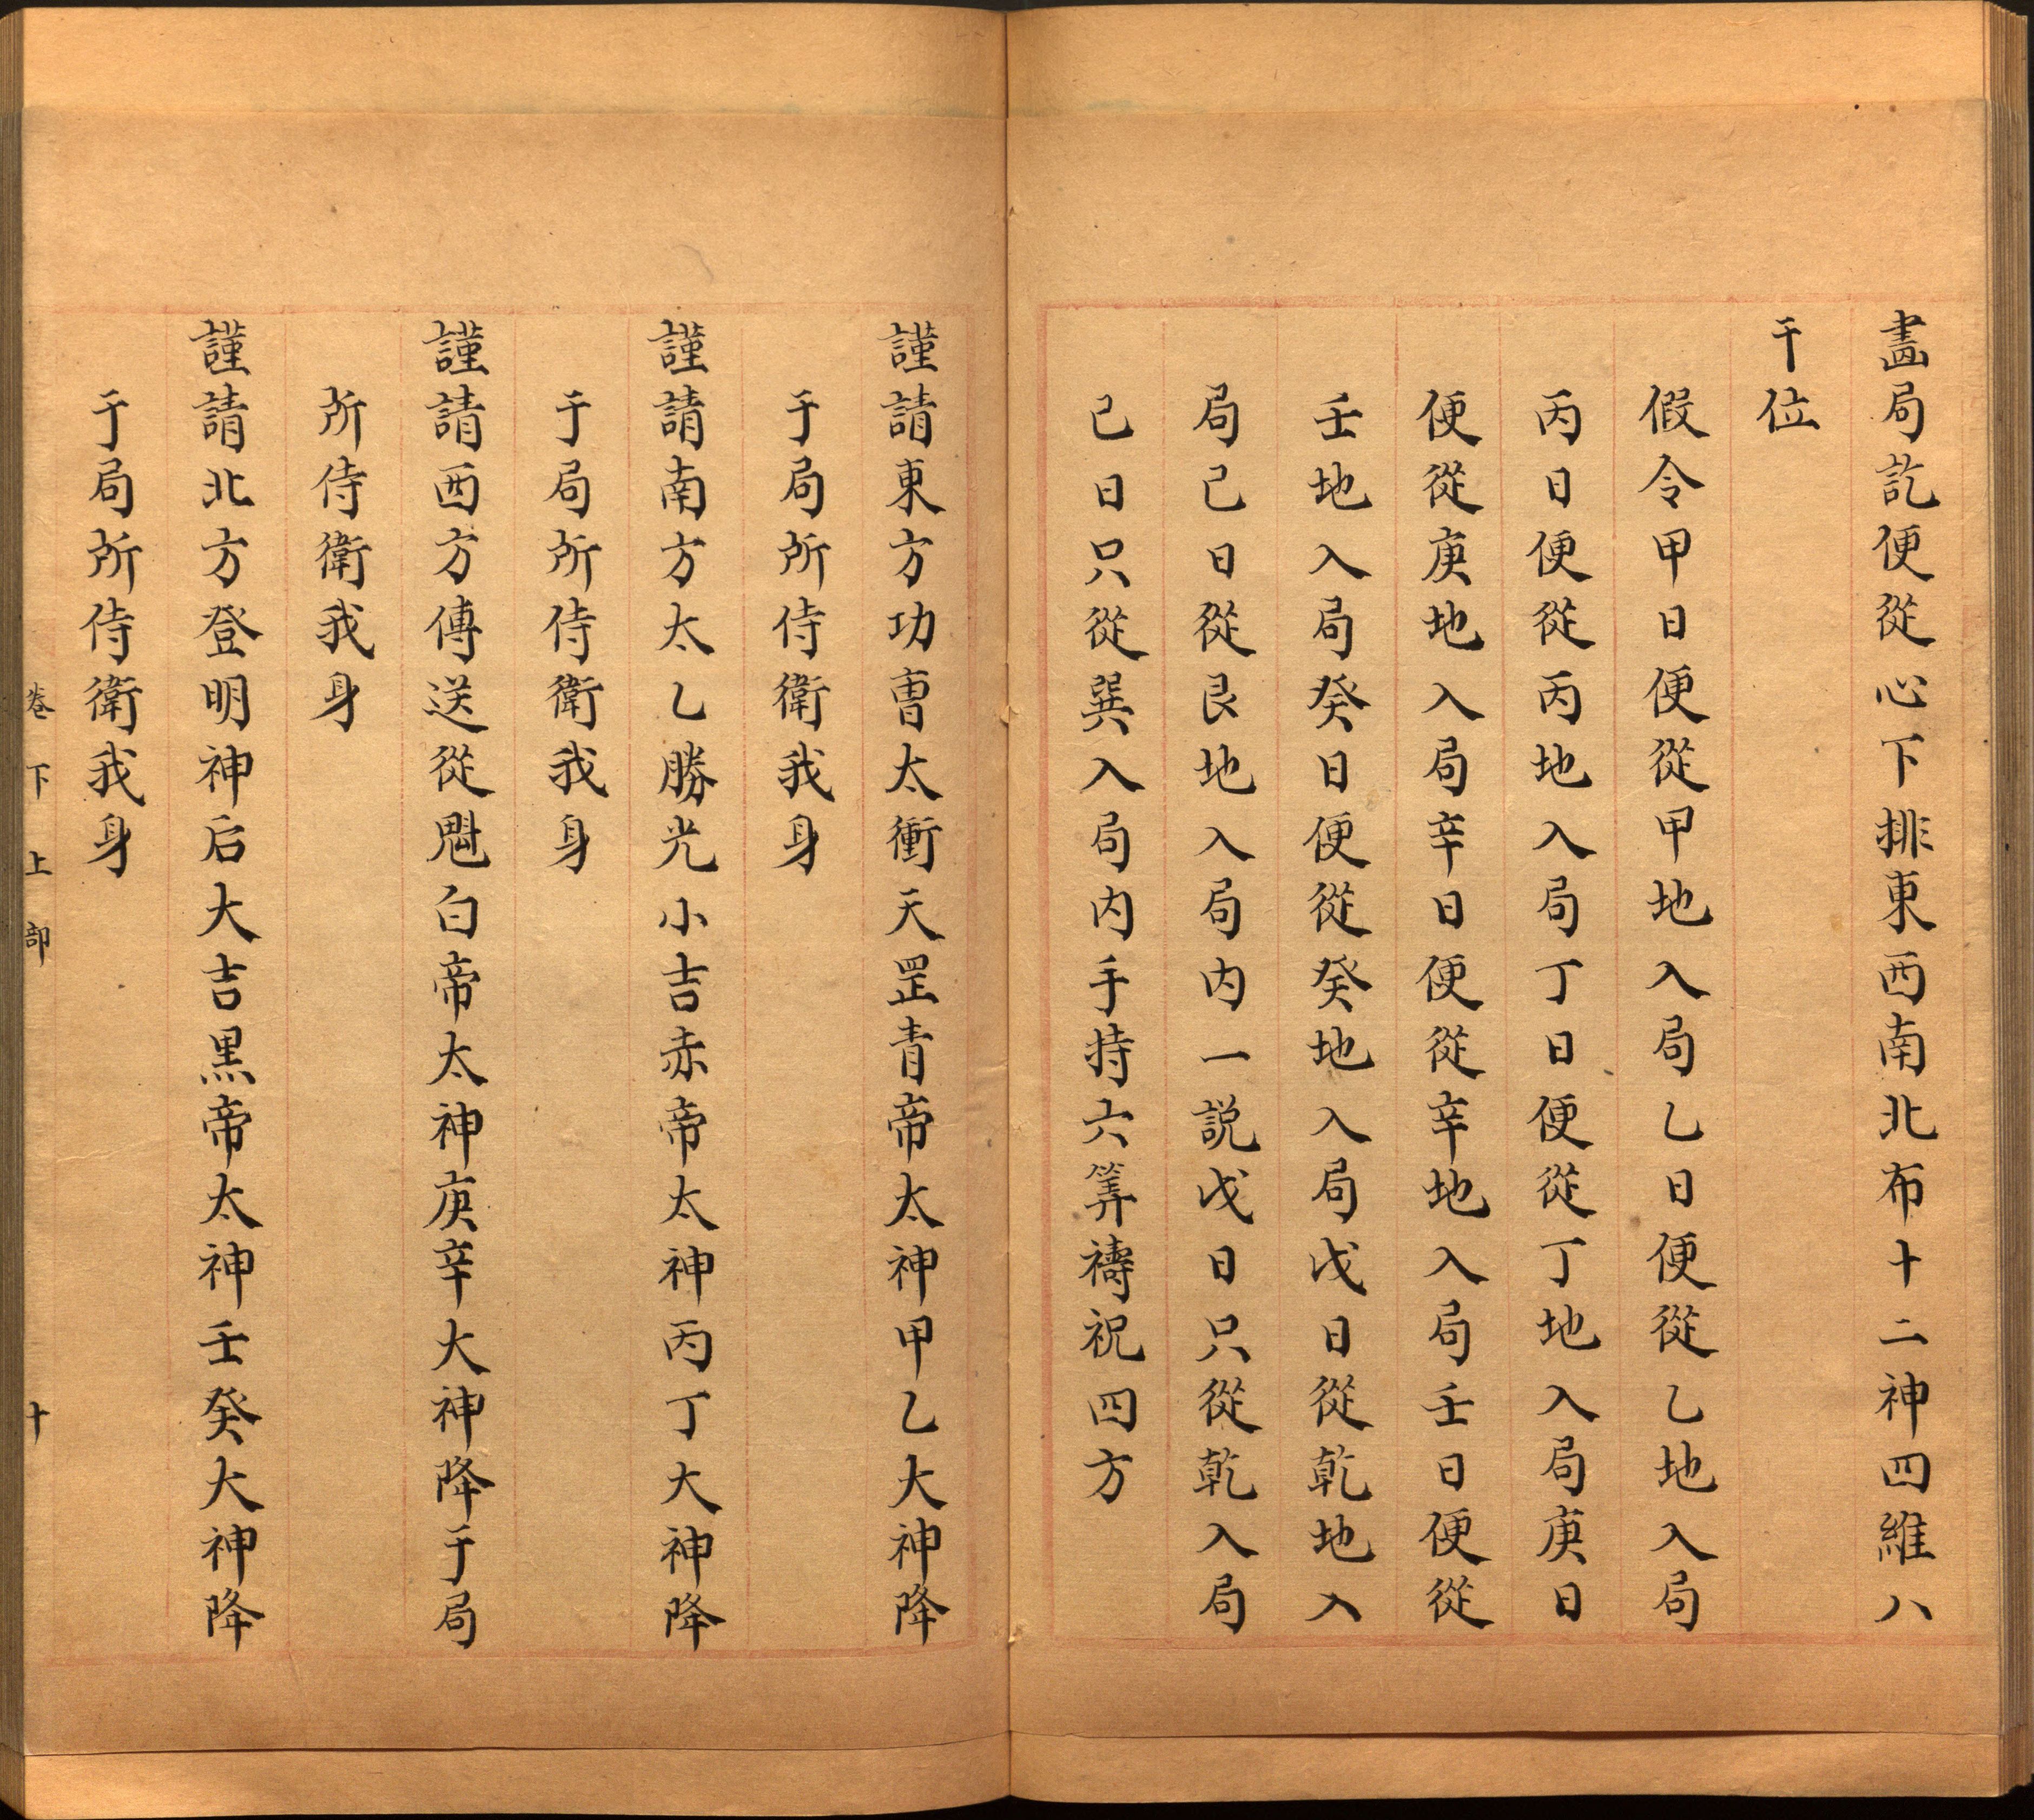 畫局訖便從心下排東西南北布十二神四維八
干位
假令甲日便從甲地入局乙日便從乙地入局
丙日便從丙地入局丁日便從丁地入局庚日
便從庚地入局辛日便從辛地入局壬日便從
壬地入局癸日便從癸地入局戊日從乾地入
局己日從艮地入局内一説戊日只從乾入局
己日只從巽入局内手持六筭禱祝四方
謹請東方功曺太衝天罡青帝太神甲乙大神降
于局所侍衛我身
謹請南方太乙勝光小吉赤帝太神丙丁大神降
于局所侍衛我身
謹請西方傳送從魁白帝太神庚辛大神降于局
所侍衛我身
謹請北方登明神后大吉黑帝太神壬癸大神降
于局所侍衛我身
卷下上部 十